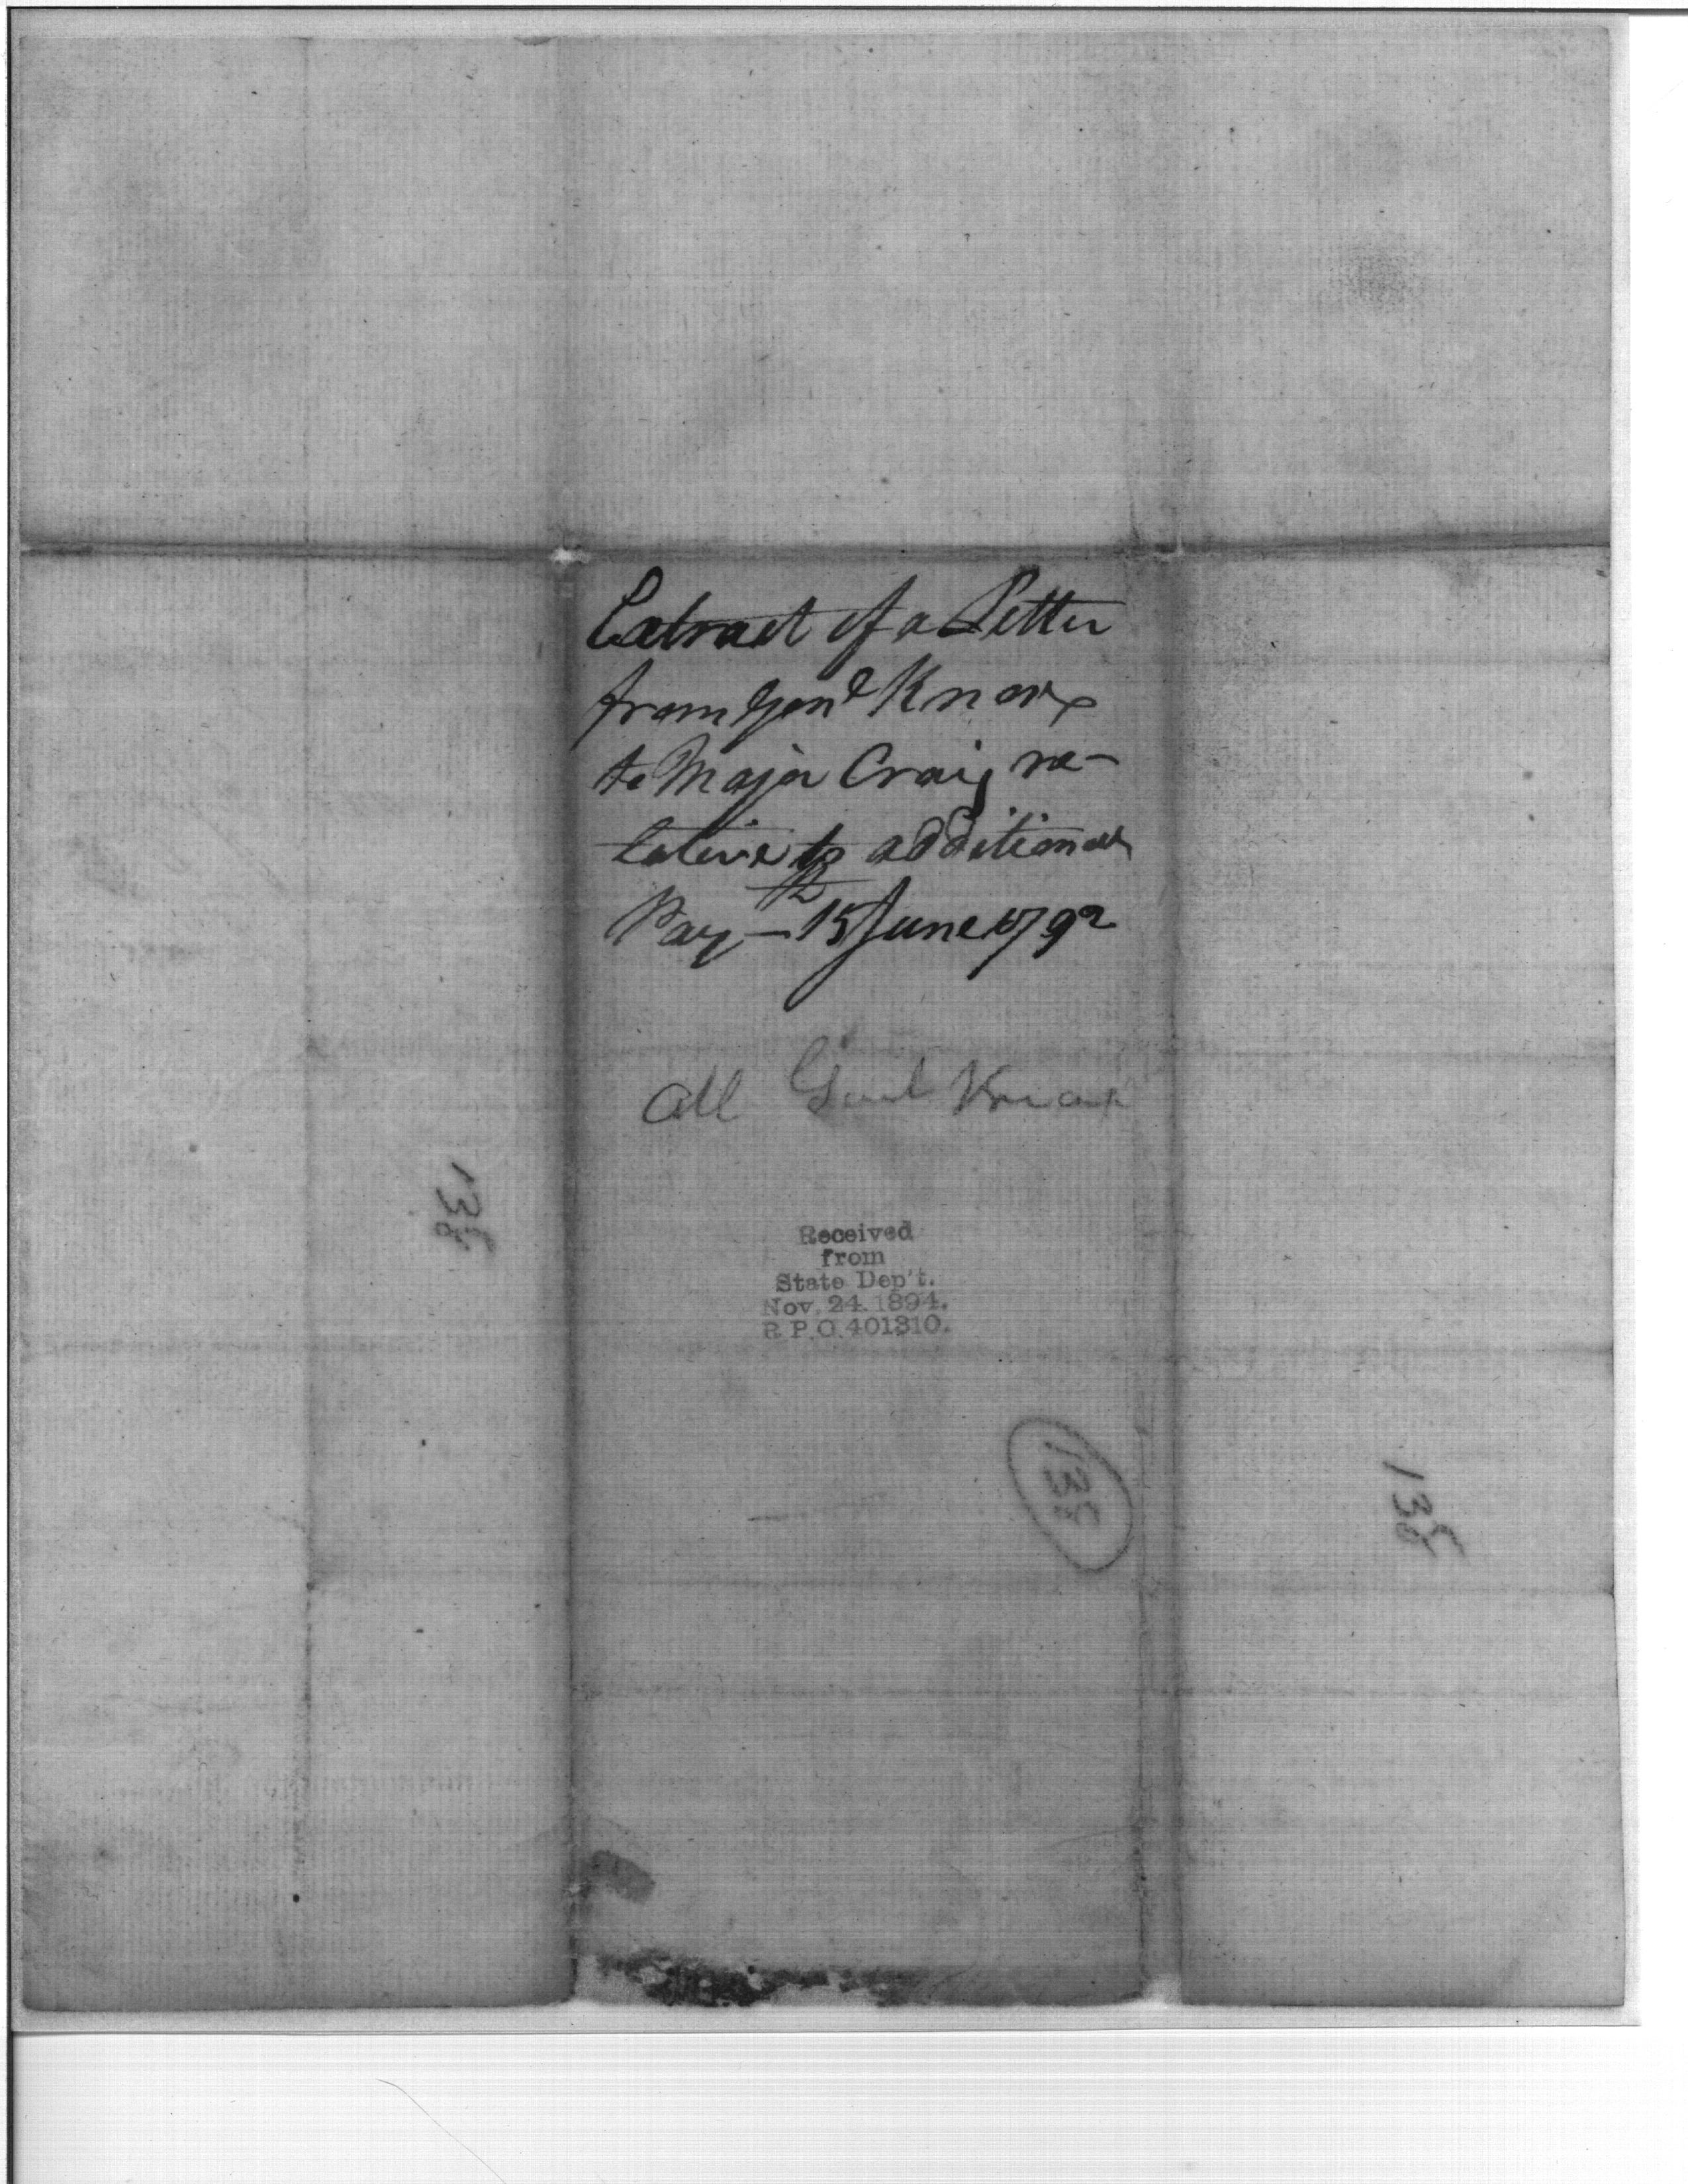 Extract of a Letter
from Genl Knox
to Major Craig re-
lative to additional
Pay - 15th June 1792
All Genl Knox
Received
from
State Dep't.
Nov. 24. 1894.
R.P.O. 401310.
138
138
138